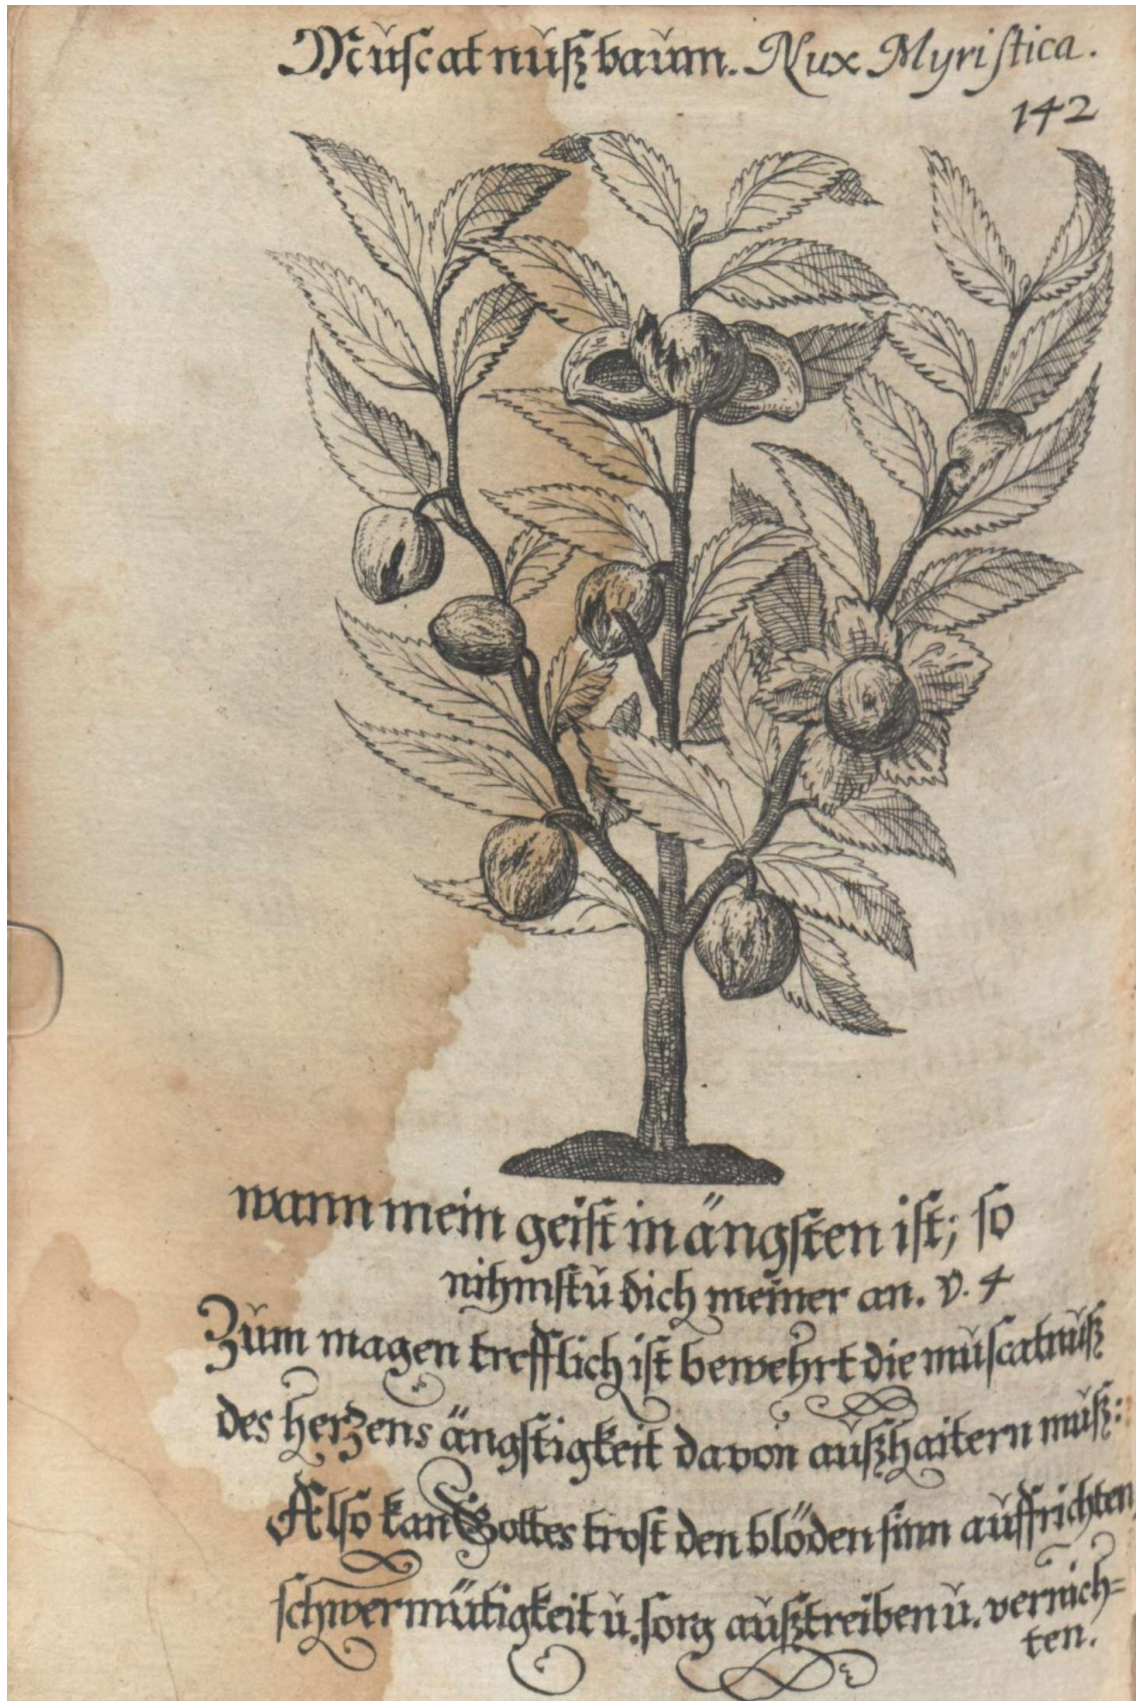 Muſcatnußbaum. Nux Myriſtica.
142
wann mein geiſt in ängſten iſt; ſo
nihmſtu dich meiner an. v. 4
Zum magen trefflich iſt bewehrt die muſcatnuß
des herzens ängſtigkeit davon außhaitern muß:
Alſo kan Gottes troſt den blöden ſinn auffrichten,
ſchwermütigkeit u. ſorg außtreiben u. vernich=
ten.